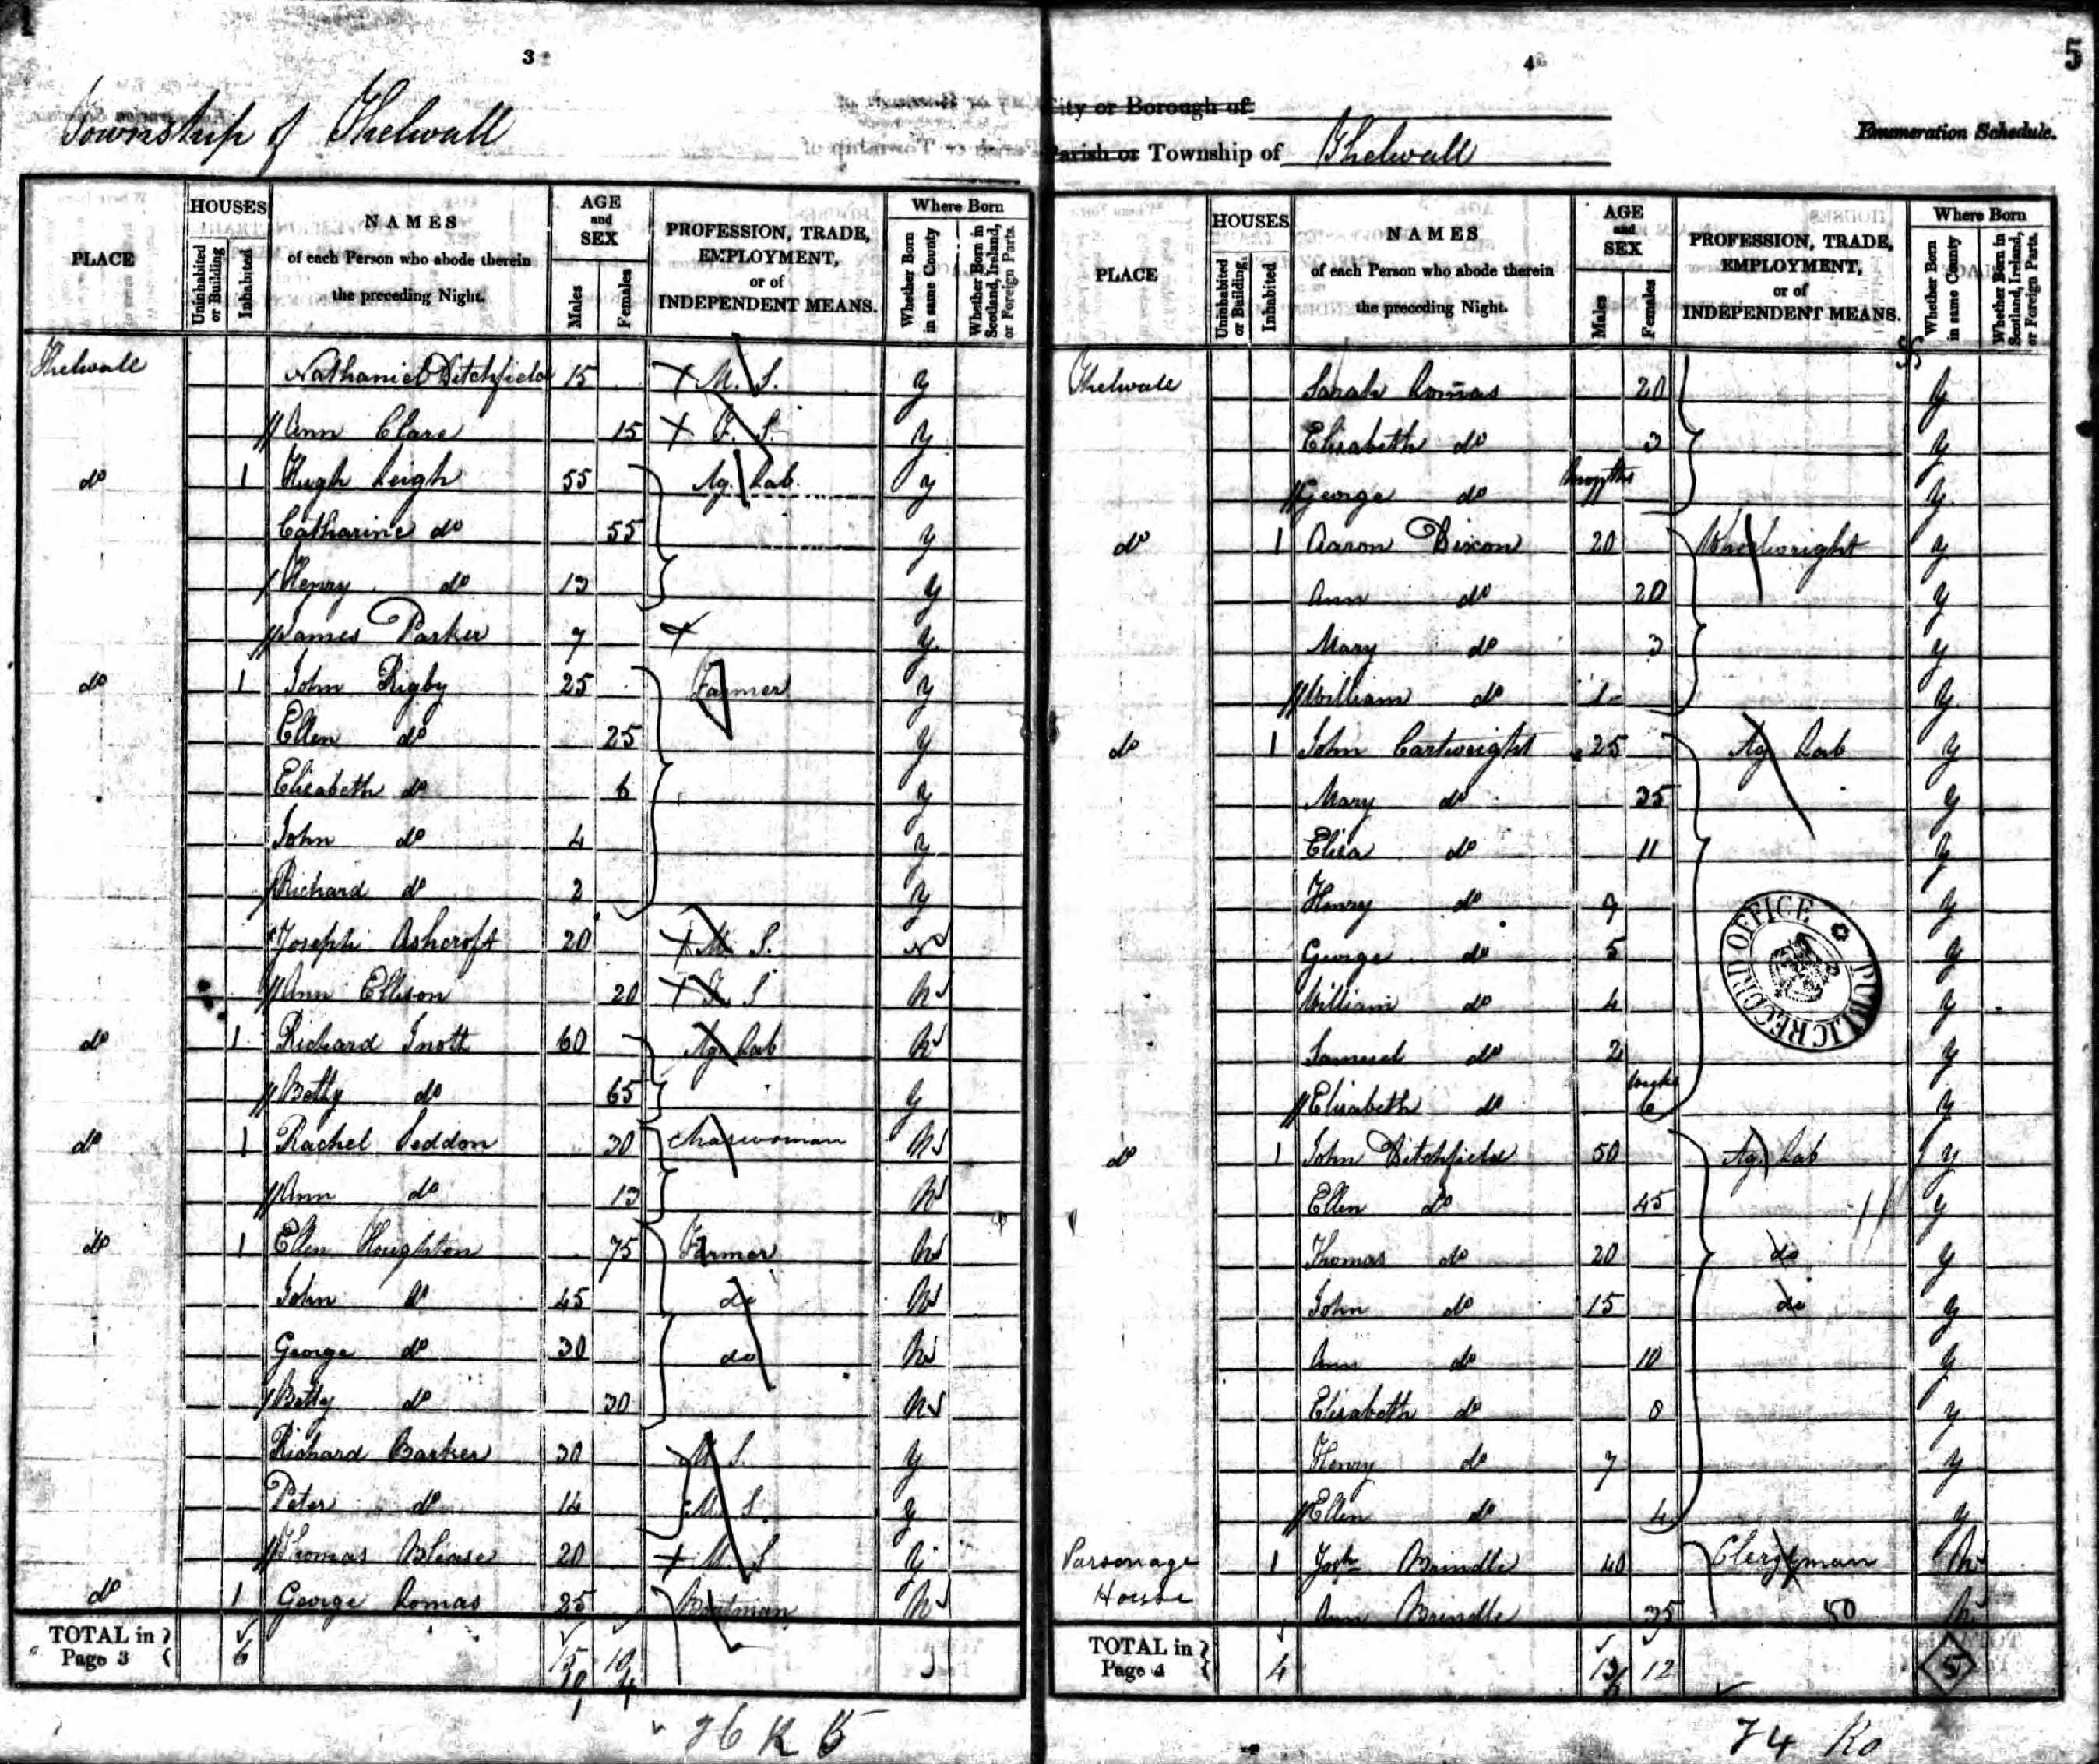 3
Township of Thelwall
PLACE
HOUSES
Uninhabited or Building
Inhabited
NAMES
of each Person who abode therein
the preceding Night.
AGE
and
SEX
Males
Females
PROFESSION, TRADE,
EMPLOYMENT,
or of
INDEPENDENT MEANS.
Where Born
Whether Born in same County
Whether Born in Scotland, Ireland, or Foreign Parts.
Thelwall Nathaniel Ditchfield 15 M. S. y
Ann Clare 15 F. S. y
do 1 Hugh Leigh 55 Ag. Lab. y
Catharine do 55 y
Henry do 13 y
James Parker 7 y
do 1 John Rigby 25 Farmer y
Ellen do 25 y
Elisabeth do 6 y
John do 4 y
Richard do 2 y
Joseph Ashcroft 20 M. S. N
Ann Ellison 20 F. S N
do 1 Richard 60 Ag. Lab N
Betty do 65 y
do 1 Rachel Seddon 30 Charwoman N
Ann do 13 N
do 1 Ellen Houghton 75 Farmer N
John do 45 do N
George do 30 do N
Betty do 30 N
Richard Barker 30 M. S. y
Peter do 14 M. S. y
Thomas Blease 20 M. S y
do 1 George Lomas 25 Boatman N
TOTAL in
Page 3 6 15 10
4
5
City or Borough of
Parish or Township of Thelwall
Enumeration Schedule.
PLACE
HOUSES
Uninhabited or Building.
Inhabited
NAMES
of each Person who abode therein
the preceding Night.
AGE
and
SEX
Males
Females
PROFESSION, TRADE,
EMPLOYMENT,
or of
INDEPENDENT MEANS.
Where Born
Whether Born in same County
Whether Born in Scotland, Ireland, or Foreign Parts.
Thelwall Sarah Lomas 20 y
Elisabeth do 3 y
George do y
do 1 Aaron Dixon 20 Wheelwright y
Ann do 20 y
Mary do 3 y
William do 1 y
do 1 John Cartwright 25 Ag. Lab y
Mary do 35 y
Eliza do 11 y
Henry do 9 y
George do 5 y
William do 4 y
Samuel do 2 y
Elisabeth do weeks 6 y
do 1 John Ditchfield 50 Ag. Lab y
Ellen do 45 y
Thomas do 20 do y
John do 15 do y
Ann do 10 y
Elisabeth do 8 y
Henry do 7 y
Ellen do 4 y
Parsonage
House 1 Josh Brindle 40 Clergyman N
Ann Brindle 35 N
TOTAL in
Page 4 4 13 12 5
PUBLIC RECORD OFFICE
74